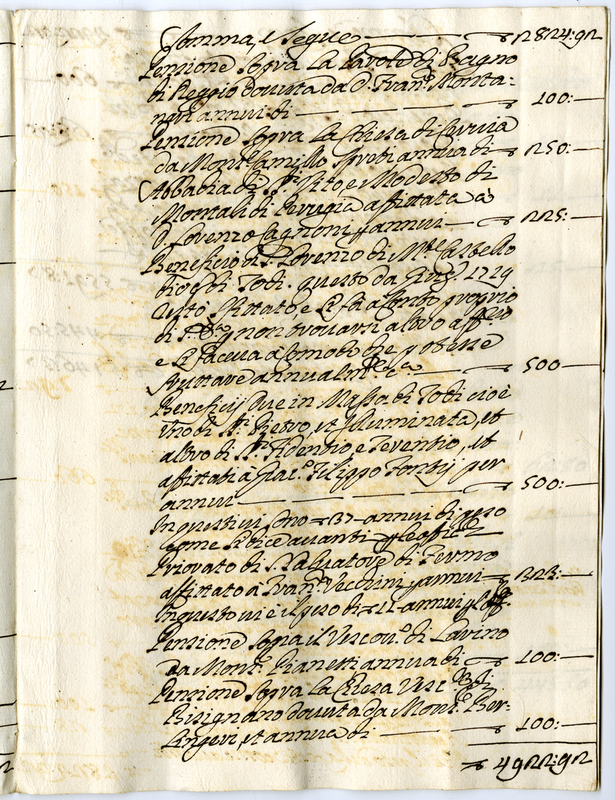 Somma, e segue — 2824:92
Pensione sopra la Pavole di Bagno
di Reggio dovuta da D. Fran.co Monta-
nari annui di — 100:
Pensione sopra la Chiesa di Cervia
da Mons.r Camillo Spreti annua di — 250:
Abbadia di S. Vito, e Modesto di
Montali di Perugia affittata a
D. Lorenzo Cagnoni p annui — 225:
Beneficio di S. Lorenzo di M.te Castello
Diog.i di Todi. questo da Giug.o 1729
sfittato, e si fa a conto proprio
di non trovarsi altro aff.
e si faceva a comodo che potesse
fruttare annualm.te — 500
Beneficij due in Massa di Todi cioè
uno di S. Pietro, et Illuminata, et
altro di S. Fidentio, e Terentio, et
affittati a Giac.o Filippo Fontij per
annui — 500:
In questi vi sono 37 annui di peso
come si dice avanti
Priorato di S. Salvatore di Fermo
affittato a Fran.co Vecchini p annui — 323:
In questo vi è il peso di 12 annui
Pensione sopra il Vescov.o di Lavino
Da Mons.r Pianetti annua di — 100:
Pensione sopra la Chiesa Vesc. di
Bisignano dovuta da Mons.r Ber-
lingeri, et annua di — 100:
4922:92